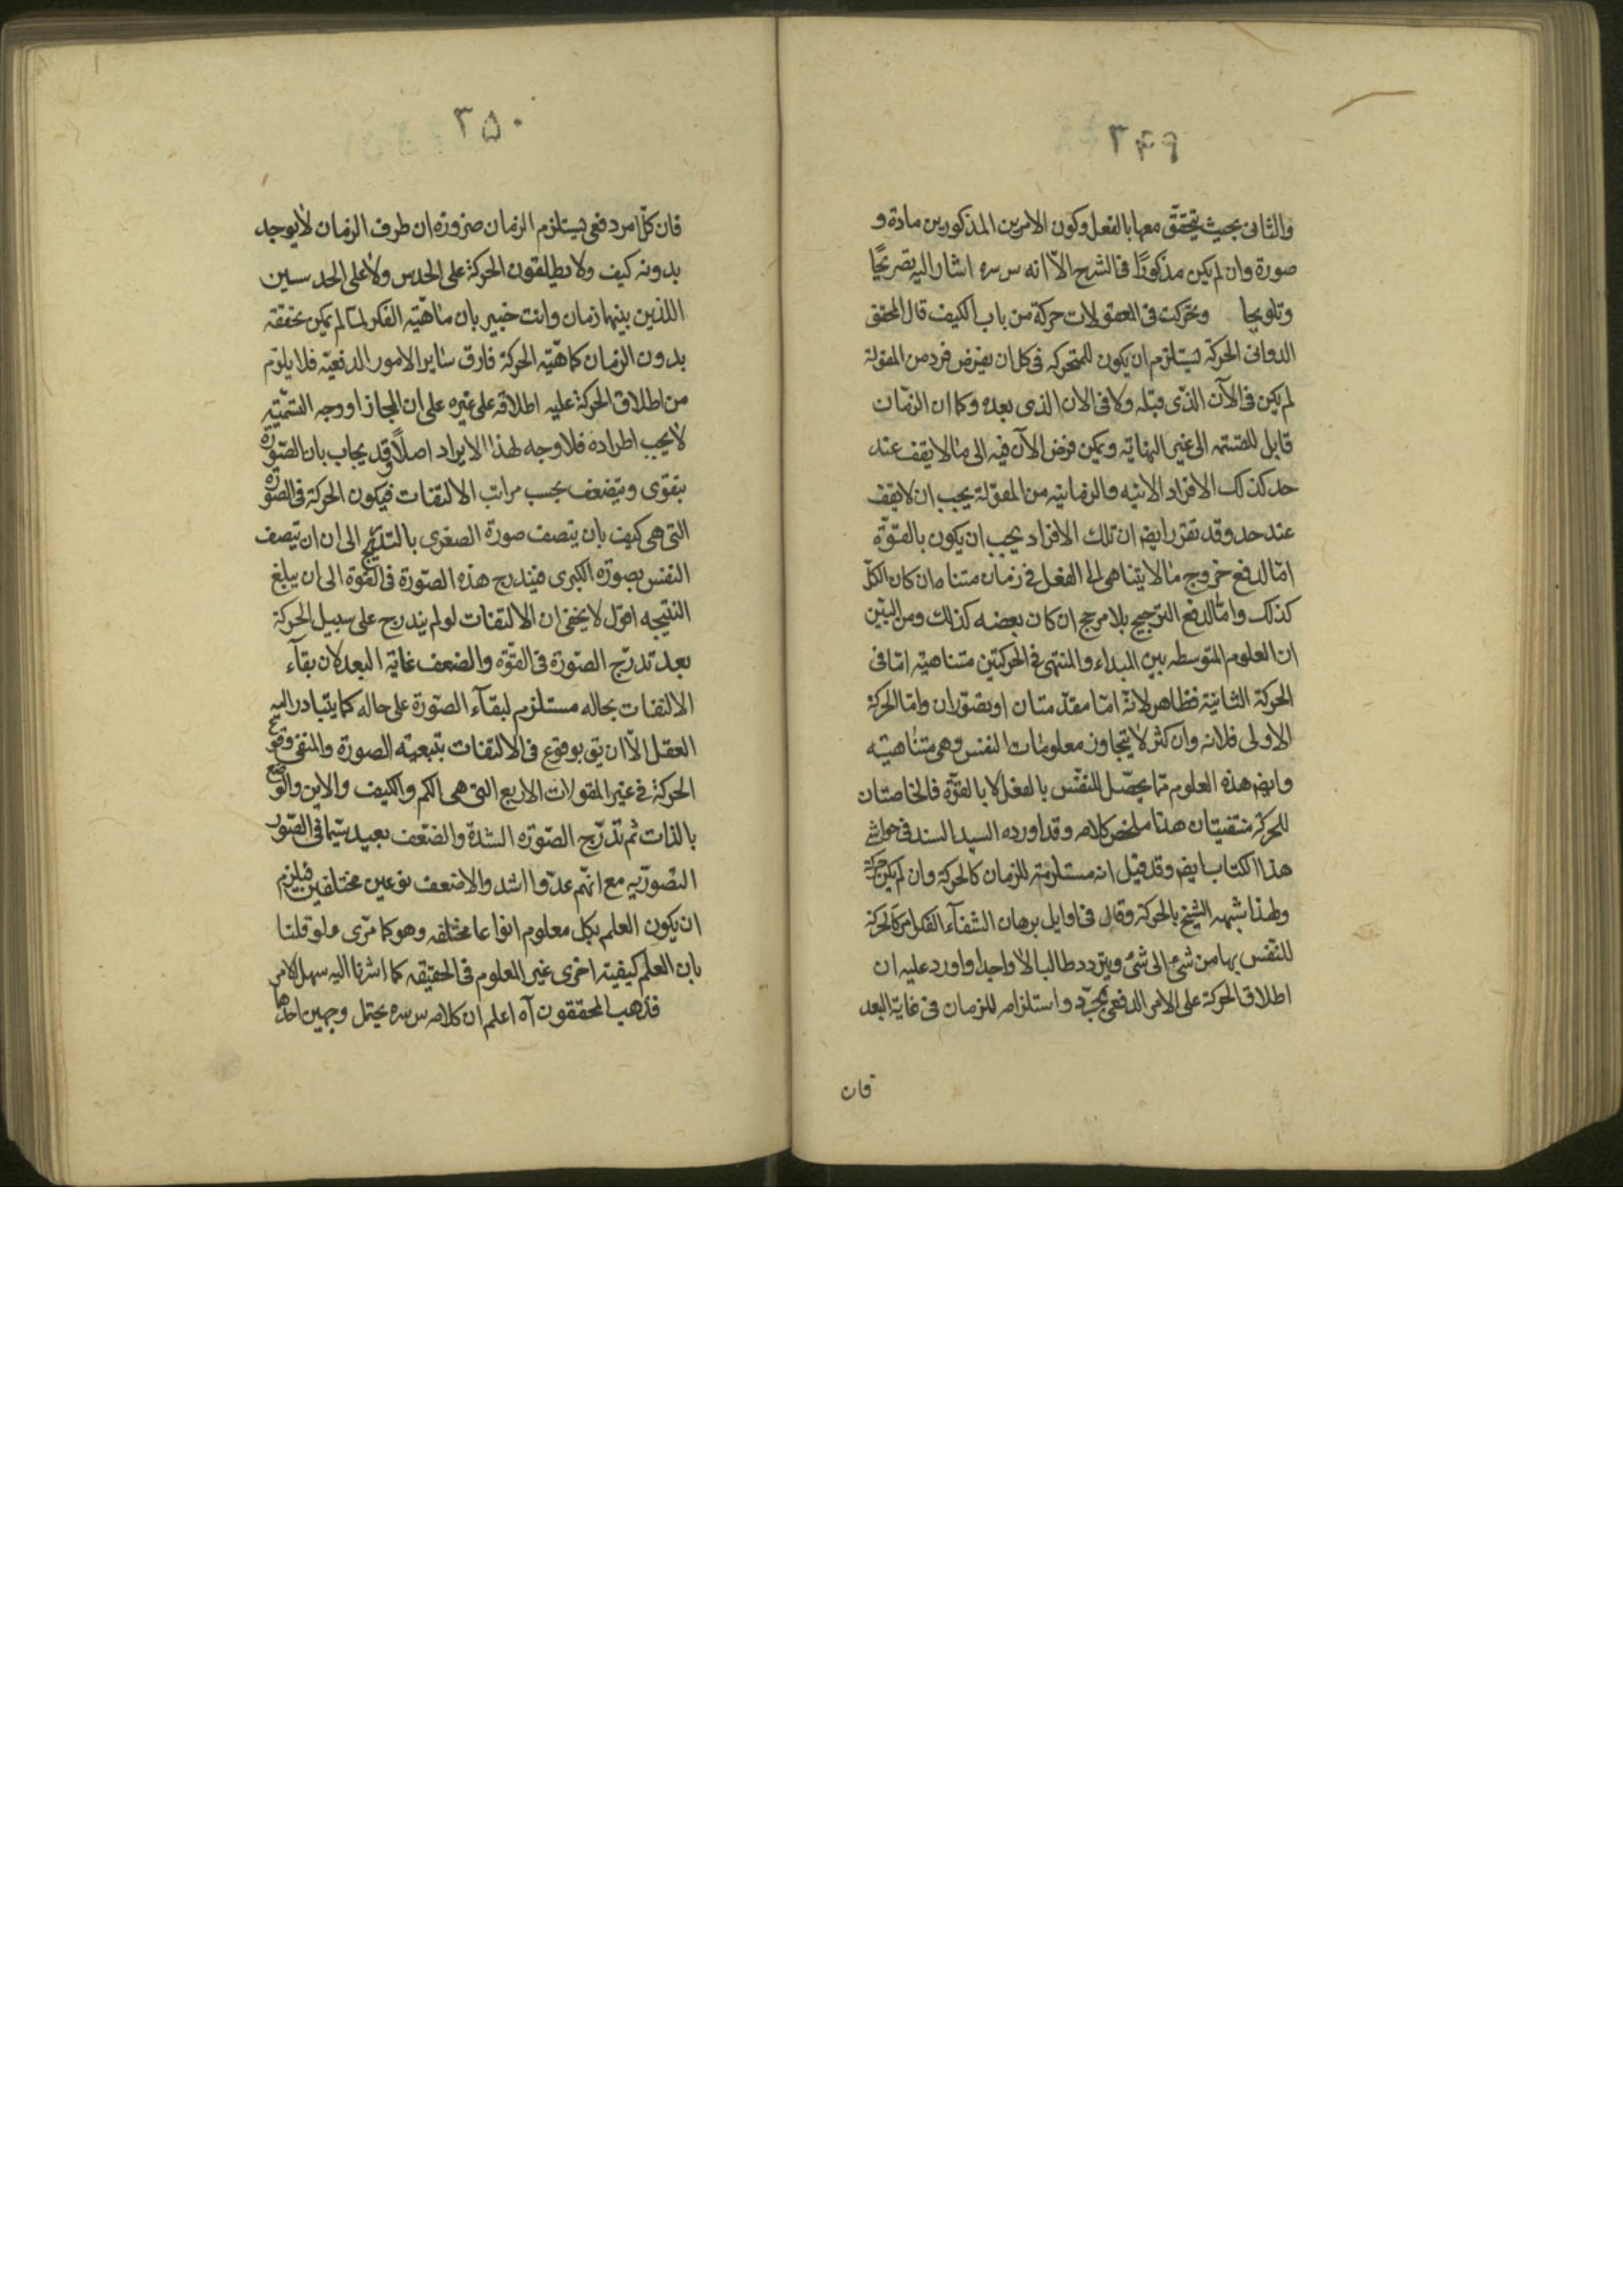 ٣٤٩
والثانى بحيث يتحقق معها بالفعل وكون الامرين المذكورين مادة و
صورة وان لم يكن مذكورًا فى الشرح الّا انه س سره اشار اليه تصريحًا
وتلويحا وتحركت فى المعقولات حركة من باب الكيف قال المحقق
الدوانى الحركة يستلزم ان يكون للمتحرك فى كل ان يفرض فرد من المقولة
لم يكن فى الآن الذى قبله ولا فى الان الذى بعده وكما ان الزمان
قابل للقسمة الى غير النهاية ويمكن فرض الآن فيه الى ما لا يقف عند
حد كذلك الافراد الانيه والزمانيه من المقولة يجب ان لا يقف
عند حد وقد تقرر ايضا ان تلك الافراد يجب ان يكون بالقوّة
امّا لدفع خروج ما لا يتناهى الى الفعل فى زمان متناه ان كان الكلّ
كذلك وامّا لدفع الترجيح بلا مرجح ان كان بعضه كذلك ومن البيّن
ان العلوم المتوسطه بين المبداء والمنتهى فى الحركتين متناهيه امّا فى
الحركة الثانية فظاهر لانّه امّا مقدّمتان او تصوّران وامّا الحركة
الاولى فلانه وان كثر لا يتجاوز معلومات النفس وهى متناهيه
وايضا هذه العلوم ممّا يحصّل للنفس بالفعل لا بالقوّة فالخاصتان
للحركة منتفيتان هذا ملخص كلامه وقد اورده السيد السند فى حواشى
هذا الكتاب ايضا وقد قيل انه مستلزمة للزمان كالحركة وان لم يكن حركة
ولهذا شبهه الشيخ بالحركة وقال فى اوايل برهان الشفآء الفكر حركة
للنفس بها من شئ الى شئ ويتردد طالبا لا واجدا واورد عليه ان
اطلاق الحركة على الامر الدفعى بمجرّد استلزامه للزمان فى غاية البعد
فان
٣٥٠
فان كلّ امر دفعى يستلزم الزمان ضرورة ان طرف الزمان لا يوجد
بدونه كيف ولا يطلقون الحركة على الحدس ولا على الحدسين
اللذين بينهما زمان وانت خبير بان ماهيّة الفكر لمّا لم يمكن تحققه
بدون الزمان كماهيّة الحركة فارق ساير الامور الدفعيّه فلا يلزم
من اطلاق الحركة عليه اطلاقه على غيره على ان المجاز او وجه التسميّة
لا يجب اطراده فلا وجه لهذا الايراد اصلًا وقد يجاب بان الصّورة
يتقوى ويتضعف بحسب مراتب الالتفات فيكون الحركة فى الصورة
التى هى كيف بان يتصف صورة الصغرى بالتدريج الى ان ان يتصف
النفس بصورة الكبرى فيندرج هذه الصّورة فى القوة الى ان يبلغ
النتيجه اقول لا يخفى ان الالتفات لو لم يندرج على سبيل الحركة
بعد تدرّج الصّورة فى القوّة والضعف غاية البعد لان بقآء
الالتفات بحاله مستلزم لبقآء الصّورة على حاله كما يتبادر اليه
العقل الّا ان يق بوقوع فى الالتفات بتبعيه الصورة والمنفى وقوع
الحركة فى غير المقولات الاربع التى هى الكم والكيف والاين والوضع
بالذات ثم تدرّج الصّورة الشدة والضعف بعيد سيّما فى الصّور
التصوريه مع انهم عدّوا اشد والاضعف نوعين مختلفين فيلزم
ان يكون العلم بكل معلوم انواعا مختلفه وهو كما ترى ولو قلنا
بان العلم كيفية اخرى غير العلوم فى الحقيقه كما اشرنا اليه سهل الامر
فذهب المحققون آه اعلم ان كلامه س سره يحتمل وجهين احدها